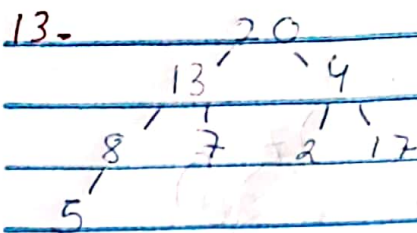 13- 20
13 4
8 7 2 17
5